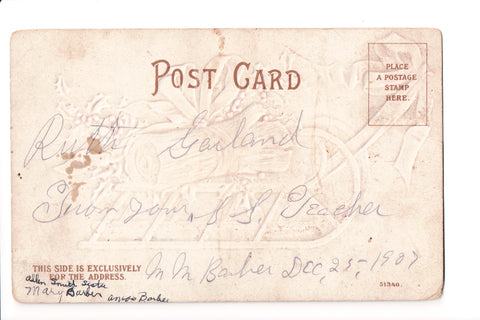 POST CARD
PLACE
A POSTAGE
STAMP
HERE.
Ruth Garland
From your S. S. Teacher
THIS SIDE IS EXCLUSIVELY
FOR THE ADDRESS.
M M Barber Dec, 25, - 1907
Allen Smith
Mary Barber
Barber
51340.